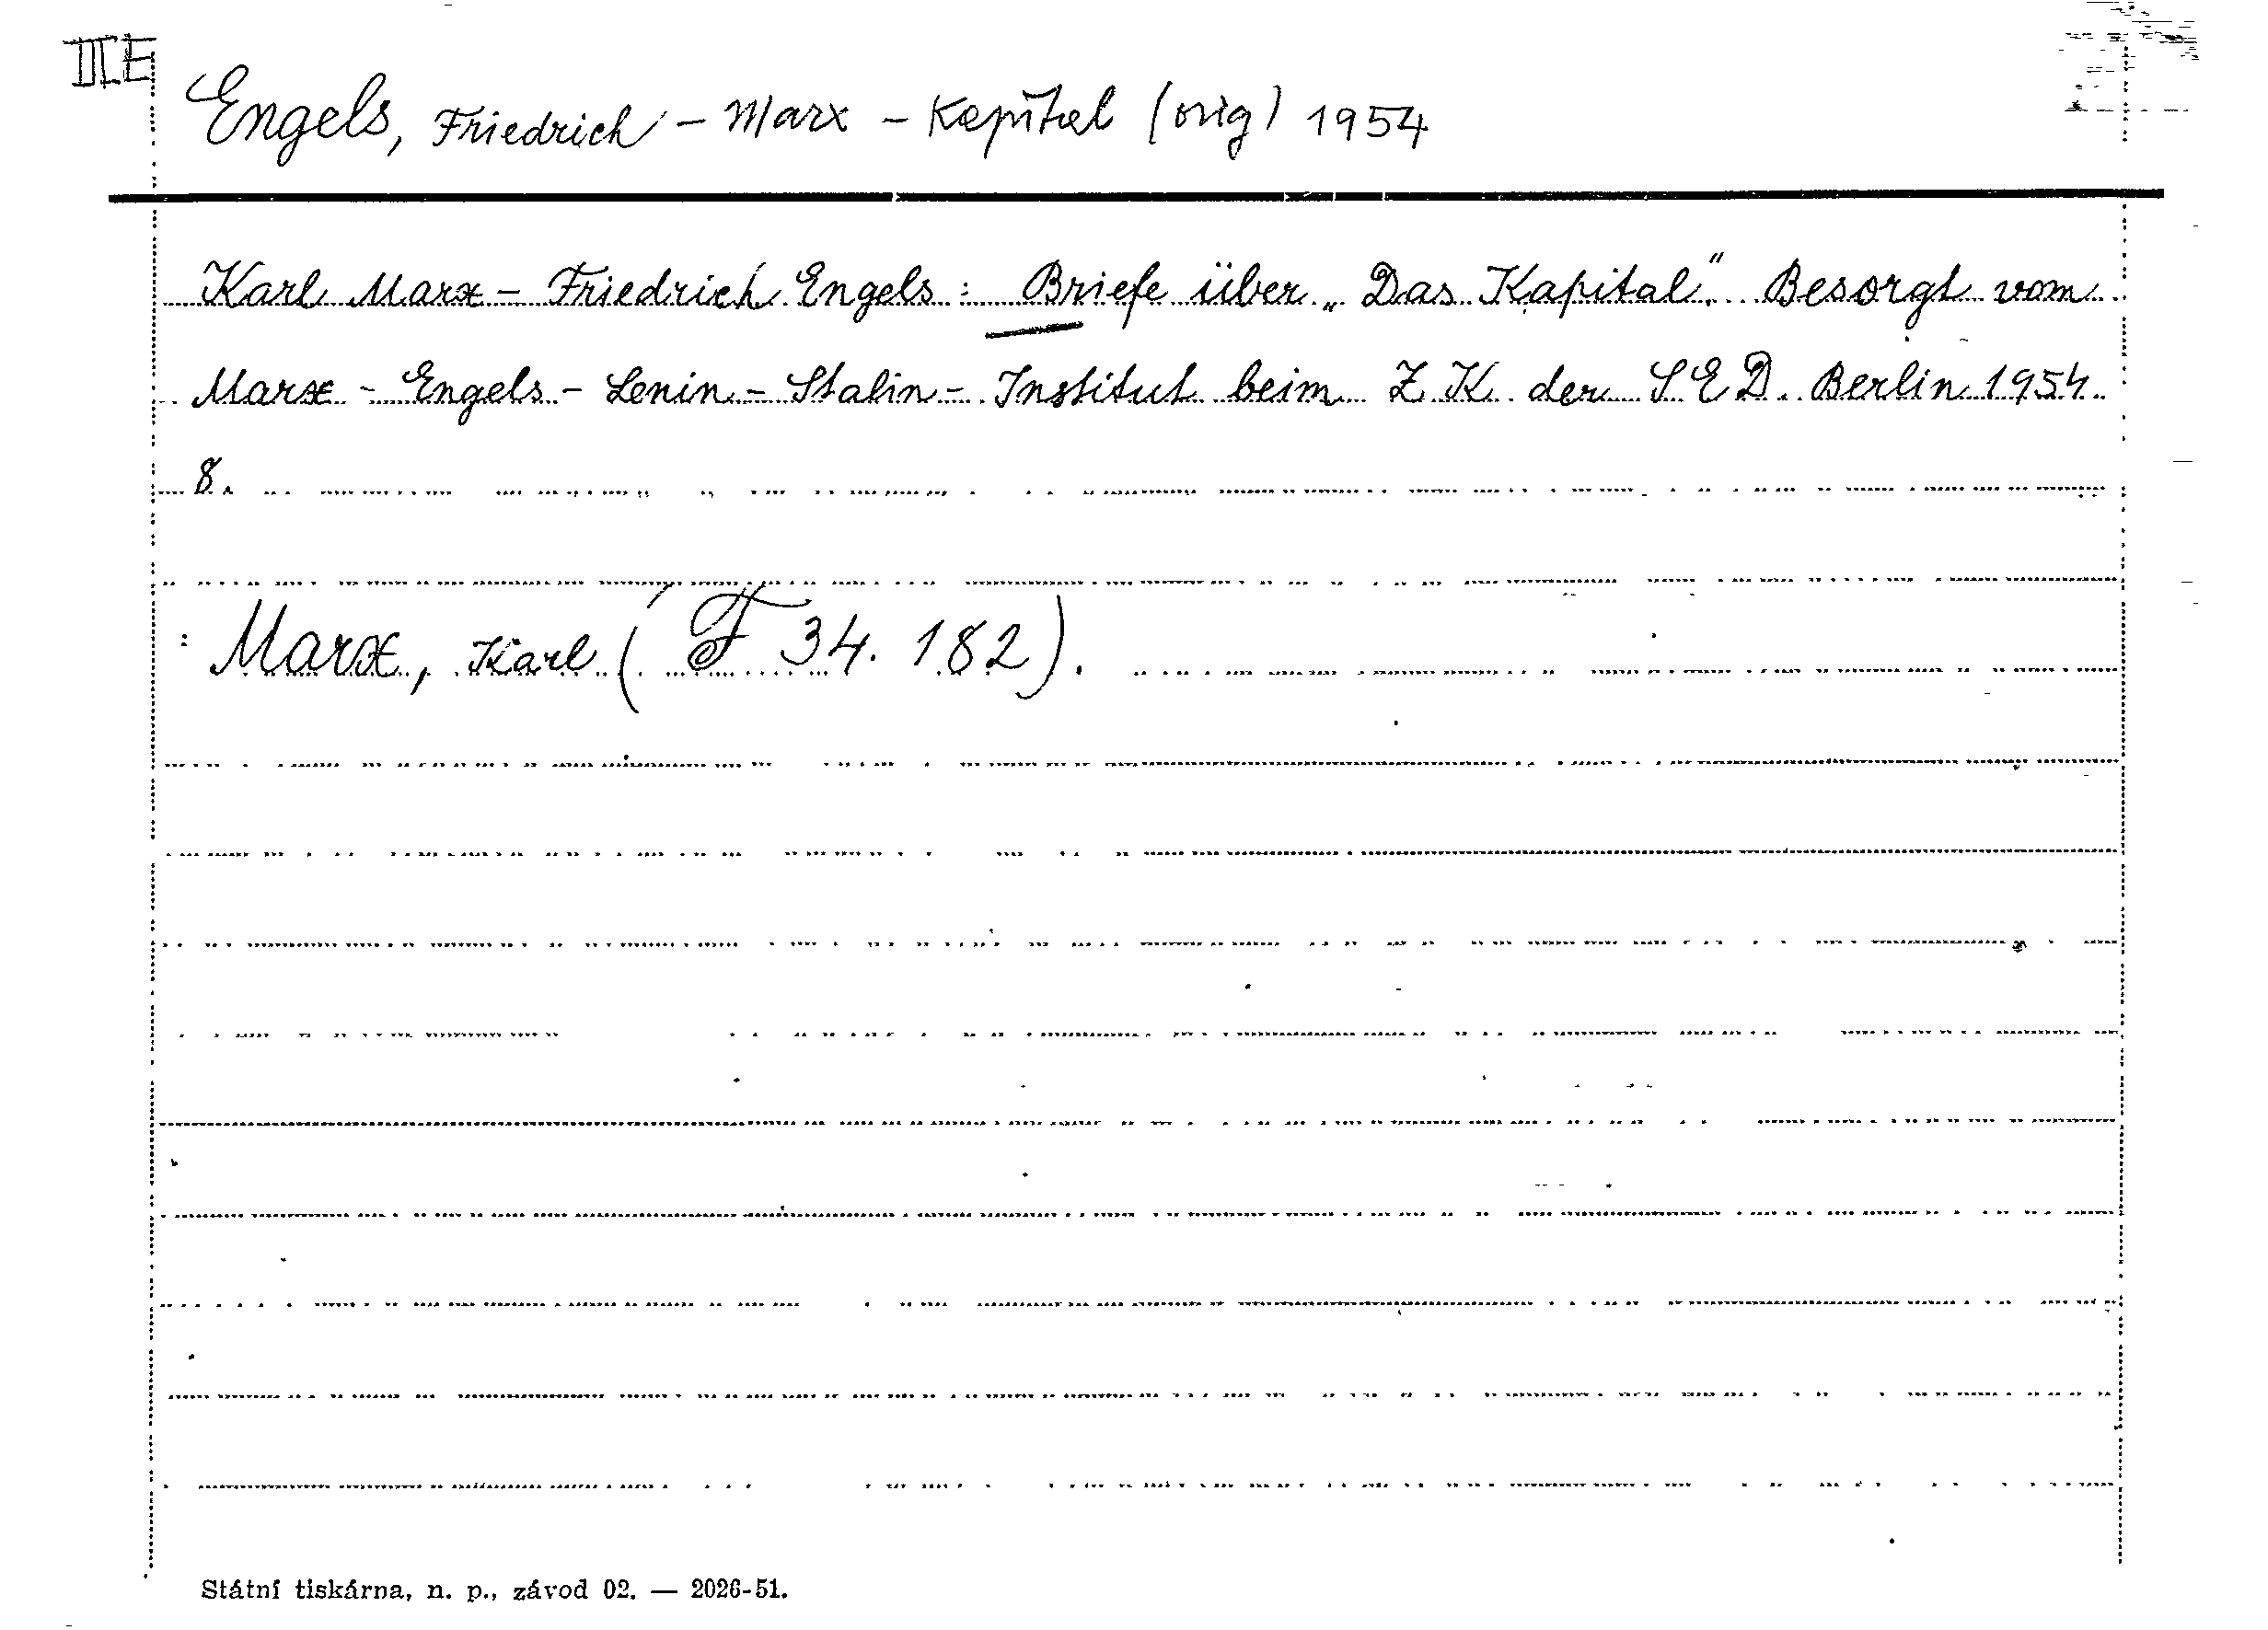 II E
Engels, Friedrich - Marx - Kapital (orig) 1954
Karl Marx - Friedrich Engels: Briefe über „Das Kapital". Besorgt vom
Marx - Engels - Lenin - Stalin - Institut beim Z. K. der S E D. Berlin 1954.
8.
Marx, Karl ( F 34. 182).
Státní tiskárna, n. p., závod 02. — 2026-51.